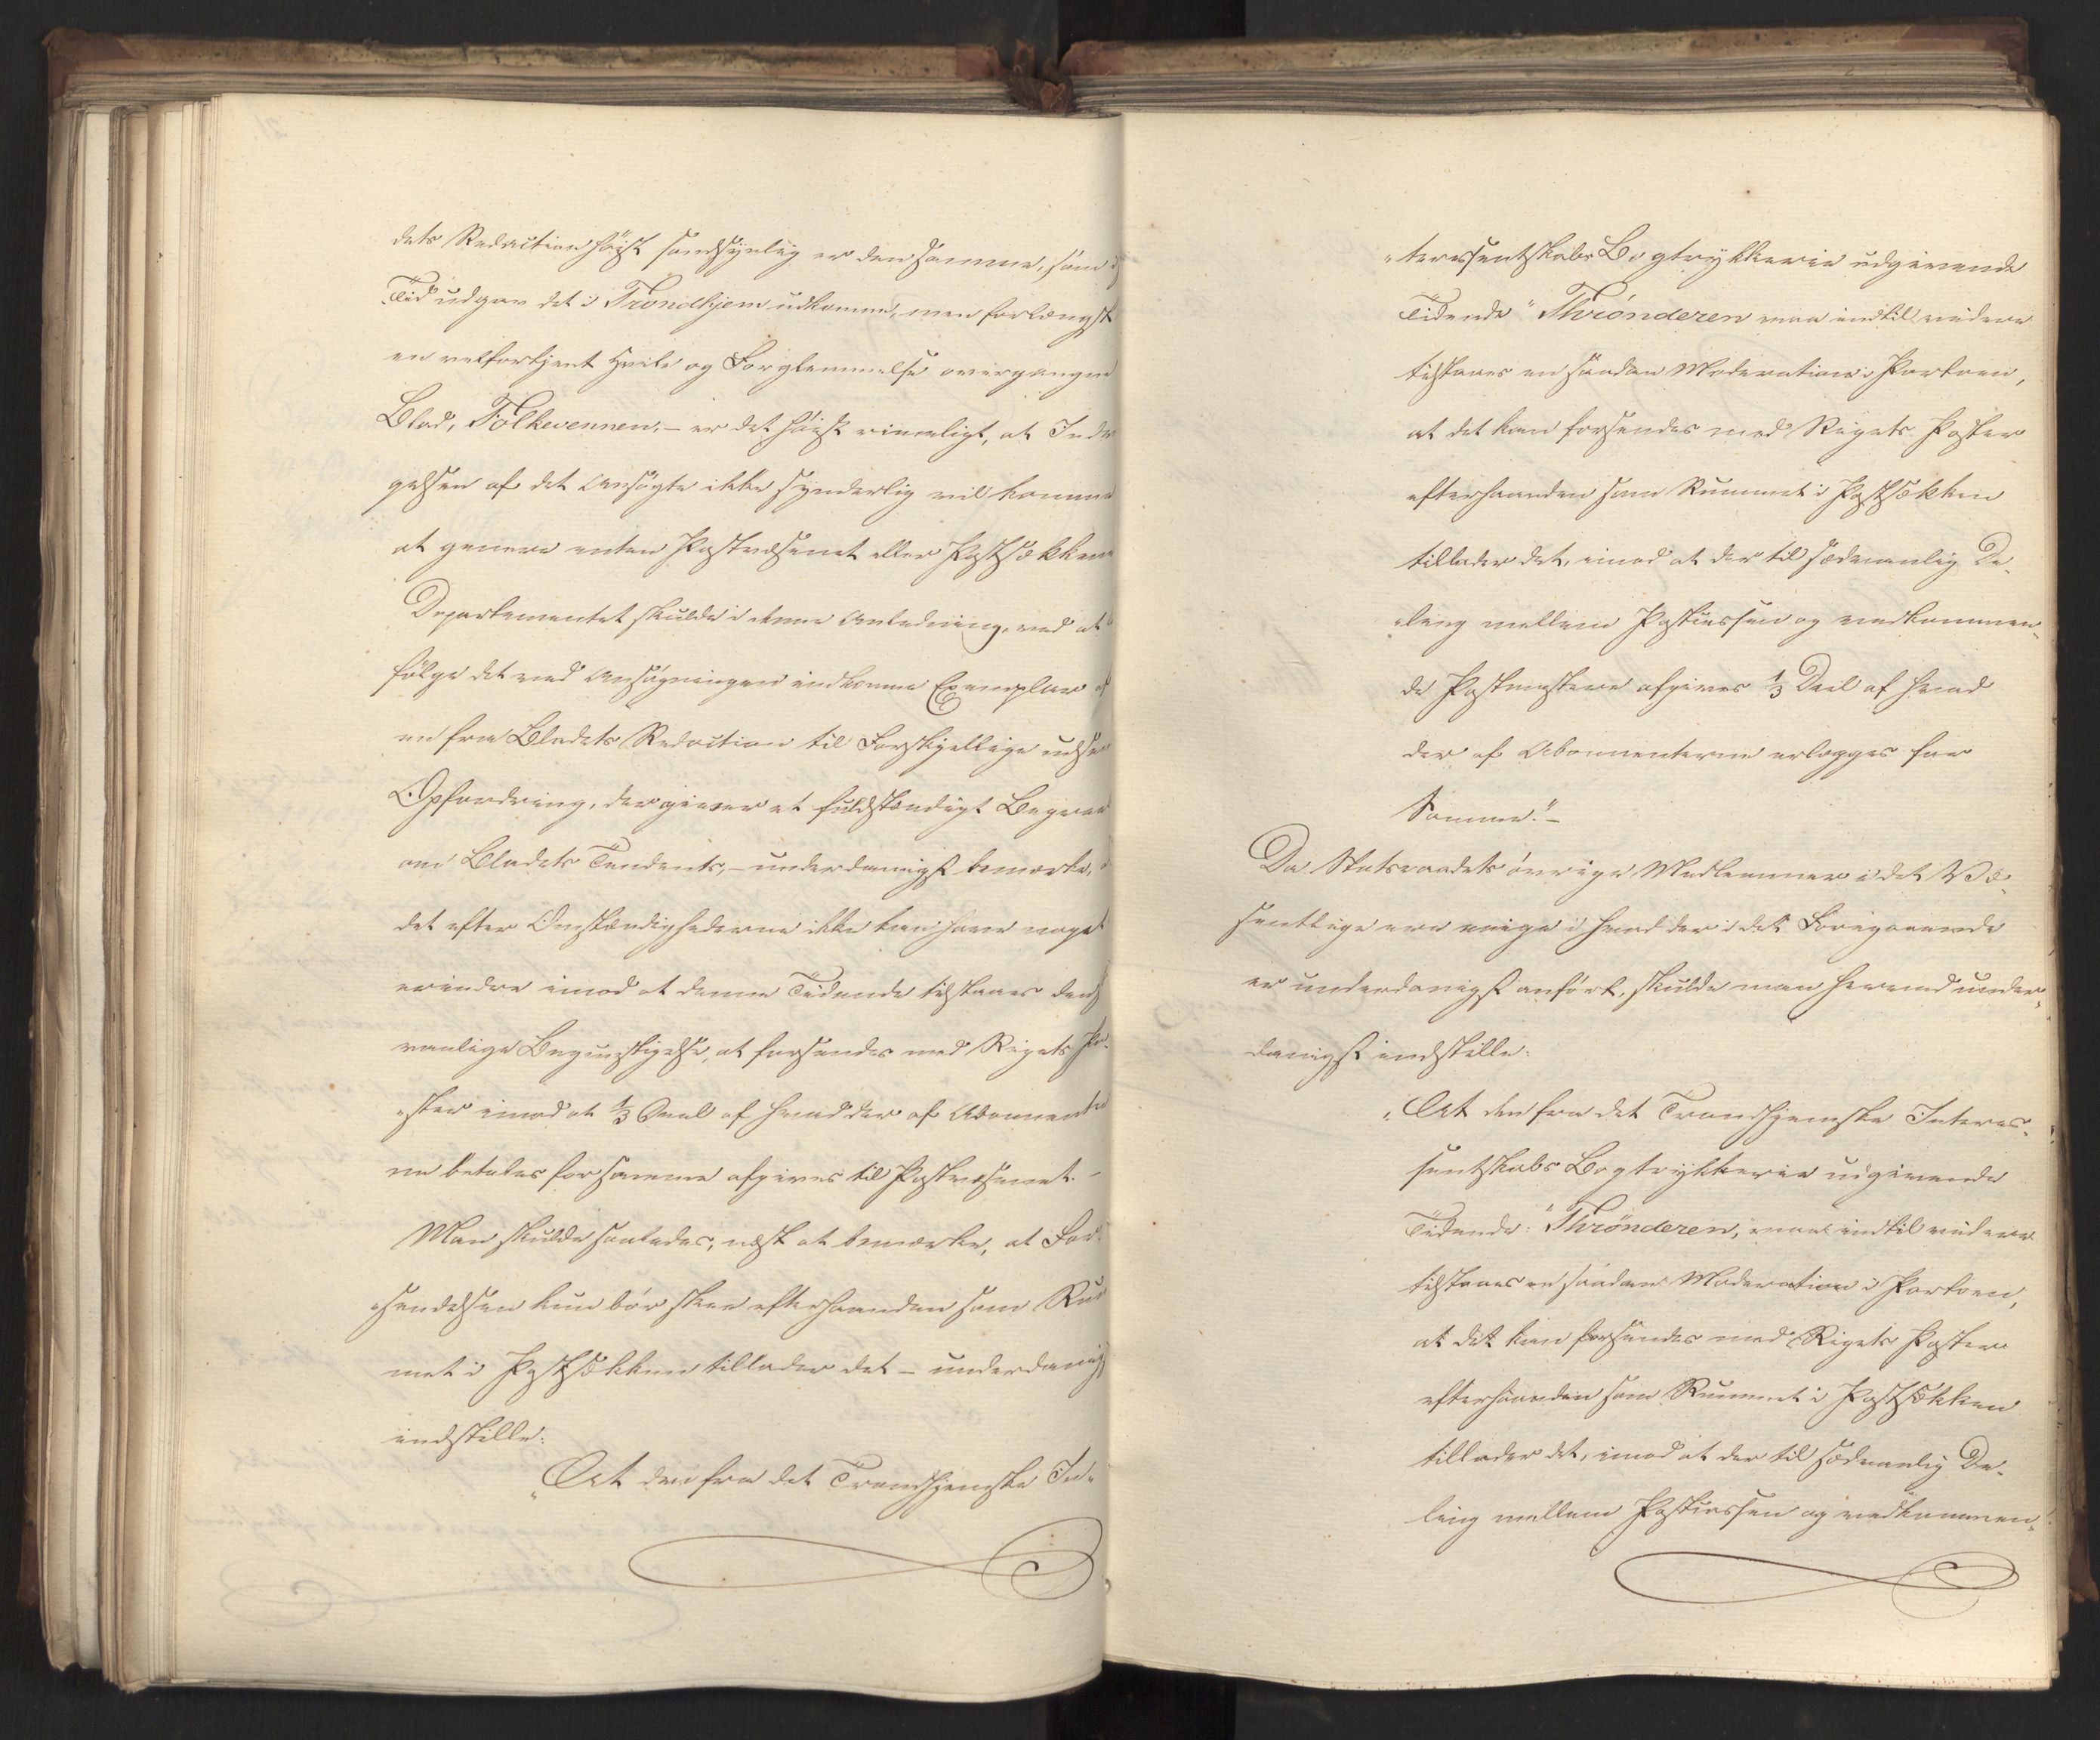 dets Redaction høist sandsynlig er den samme, som i
Tid udgav det i Trondhjem udkomne, men forlængst
en velfortjent Hvile og Forglemmelse overgangne
Blad, Folkevennen, – er det høist rimeligt, at Inde
gelsen af det Ansøgte ikke synderlig vil komme
at genere enten Postvæsenet eller Postsækken
Departementet skulde i denne Anledning, ved at
følge det med Ansøgningen indkomne Exemplar af
en fra Bladets Redaction til Forskjellige udse
Opfordring, der giver et fuldstændigt Begreb
om Bladets Tendents, – underdanigst bemærke,
det efter Omstændighederne ikke kan have noget
erindre imod at denne Tidende tilstaaes den
vanlige Begunstigelse, at forsendes med Rigets Po-
ster imod at 1/3 Deel af hvad der af Abonnenter
ne betales for samme afgives til Postvæsenet. –
Man skulde saaledes, næst at bemærke, at For-
sendelsen kun bør skee efterhaanden som Rum
met i Postsækken tillader det – underdanigst
indstille:
„At den fra det Trondhjemske In-
teressentskabs Bogtrykkerie udgivende
Tidende "Thrönderen maa indtil videre
tilstaaes en saadan Moderation i Portoen,
at det kan forsendes med Rigets Poster
efterhaanden som Rummet i Postsækken
tillader det, imod at der til sædvanlig De-
ling mellem Postcassen og vedkommen-
de Postmestere afgives 1/3 Deel af hvad
der af Abonnenterne erlægges for
Samme." –
Da Statsraadets øvrige Medlemmer i det Væ-
sentlige ere enige i hvad der i det Foregaaende
er underdanigst anført, skulde man herved under-
danigst indstille:
„At den fra det Trondhjemske Interes-
sentskabs Bogtrykkerie udgivende
Tidende: "Thrönderen, maa indtil videre
tilstaaes en saadan Moderation i Portoen,
at det kan forsendes med Rigets Poster
efterhaanden som Rummet i Postsækken
tillader det, imod at der til sædvanlig De-
ling mellem Postcassen og vedkommen-